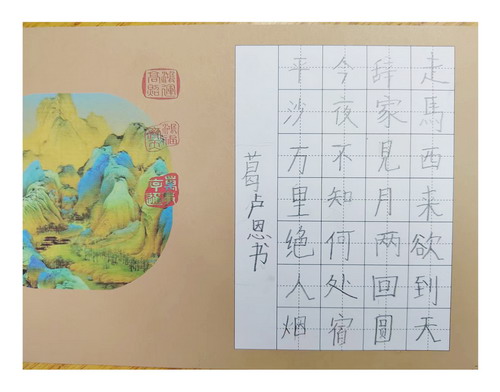 走馬西来欲到天
辞家見月两回圓
今夜不知何处宿
平沙万里绝人烟
葛卢恩书